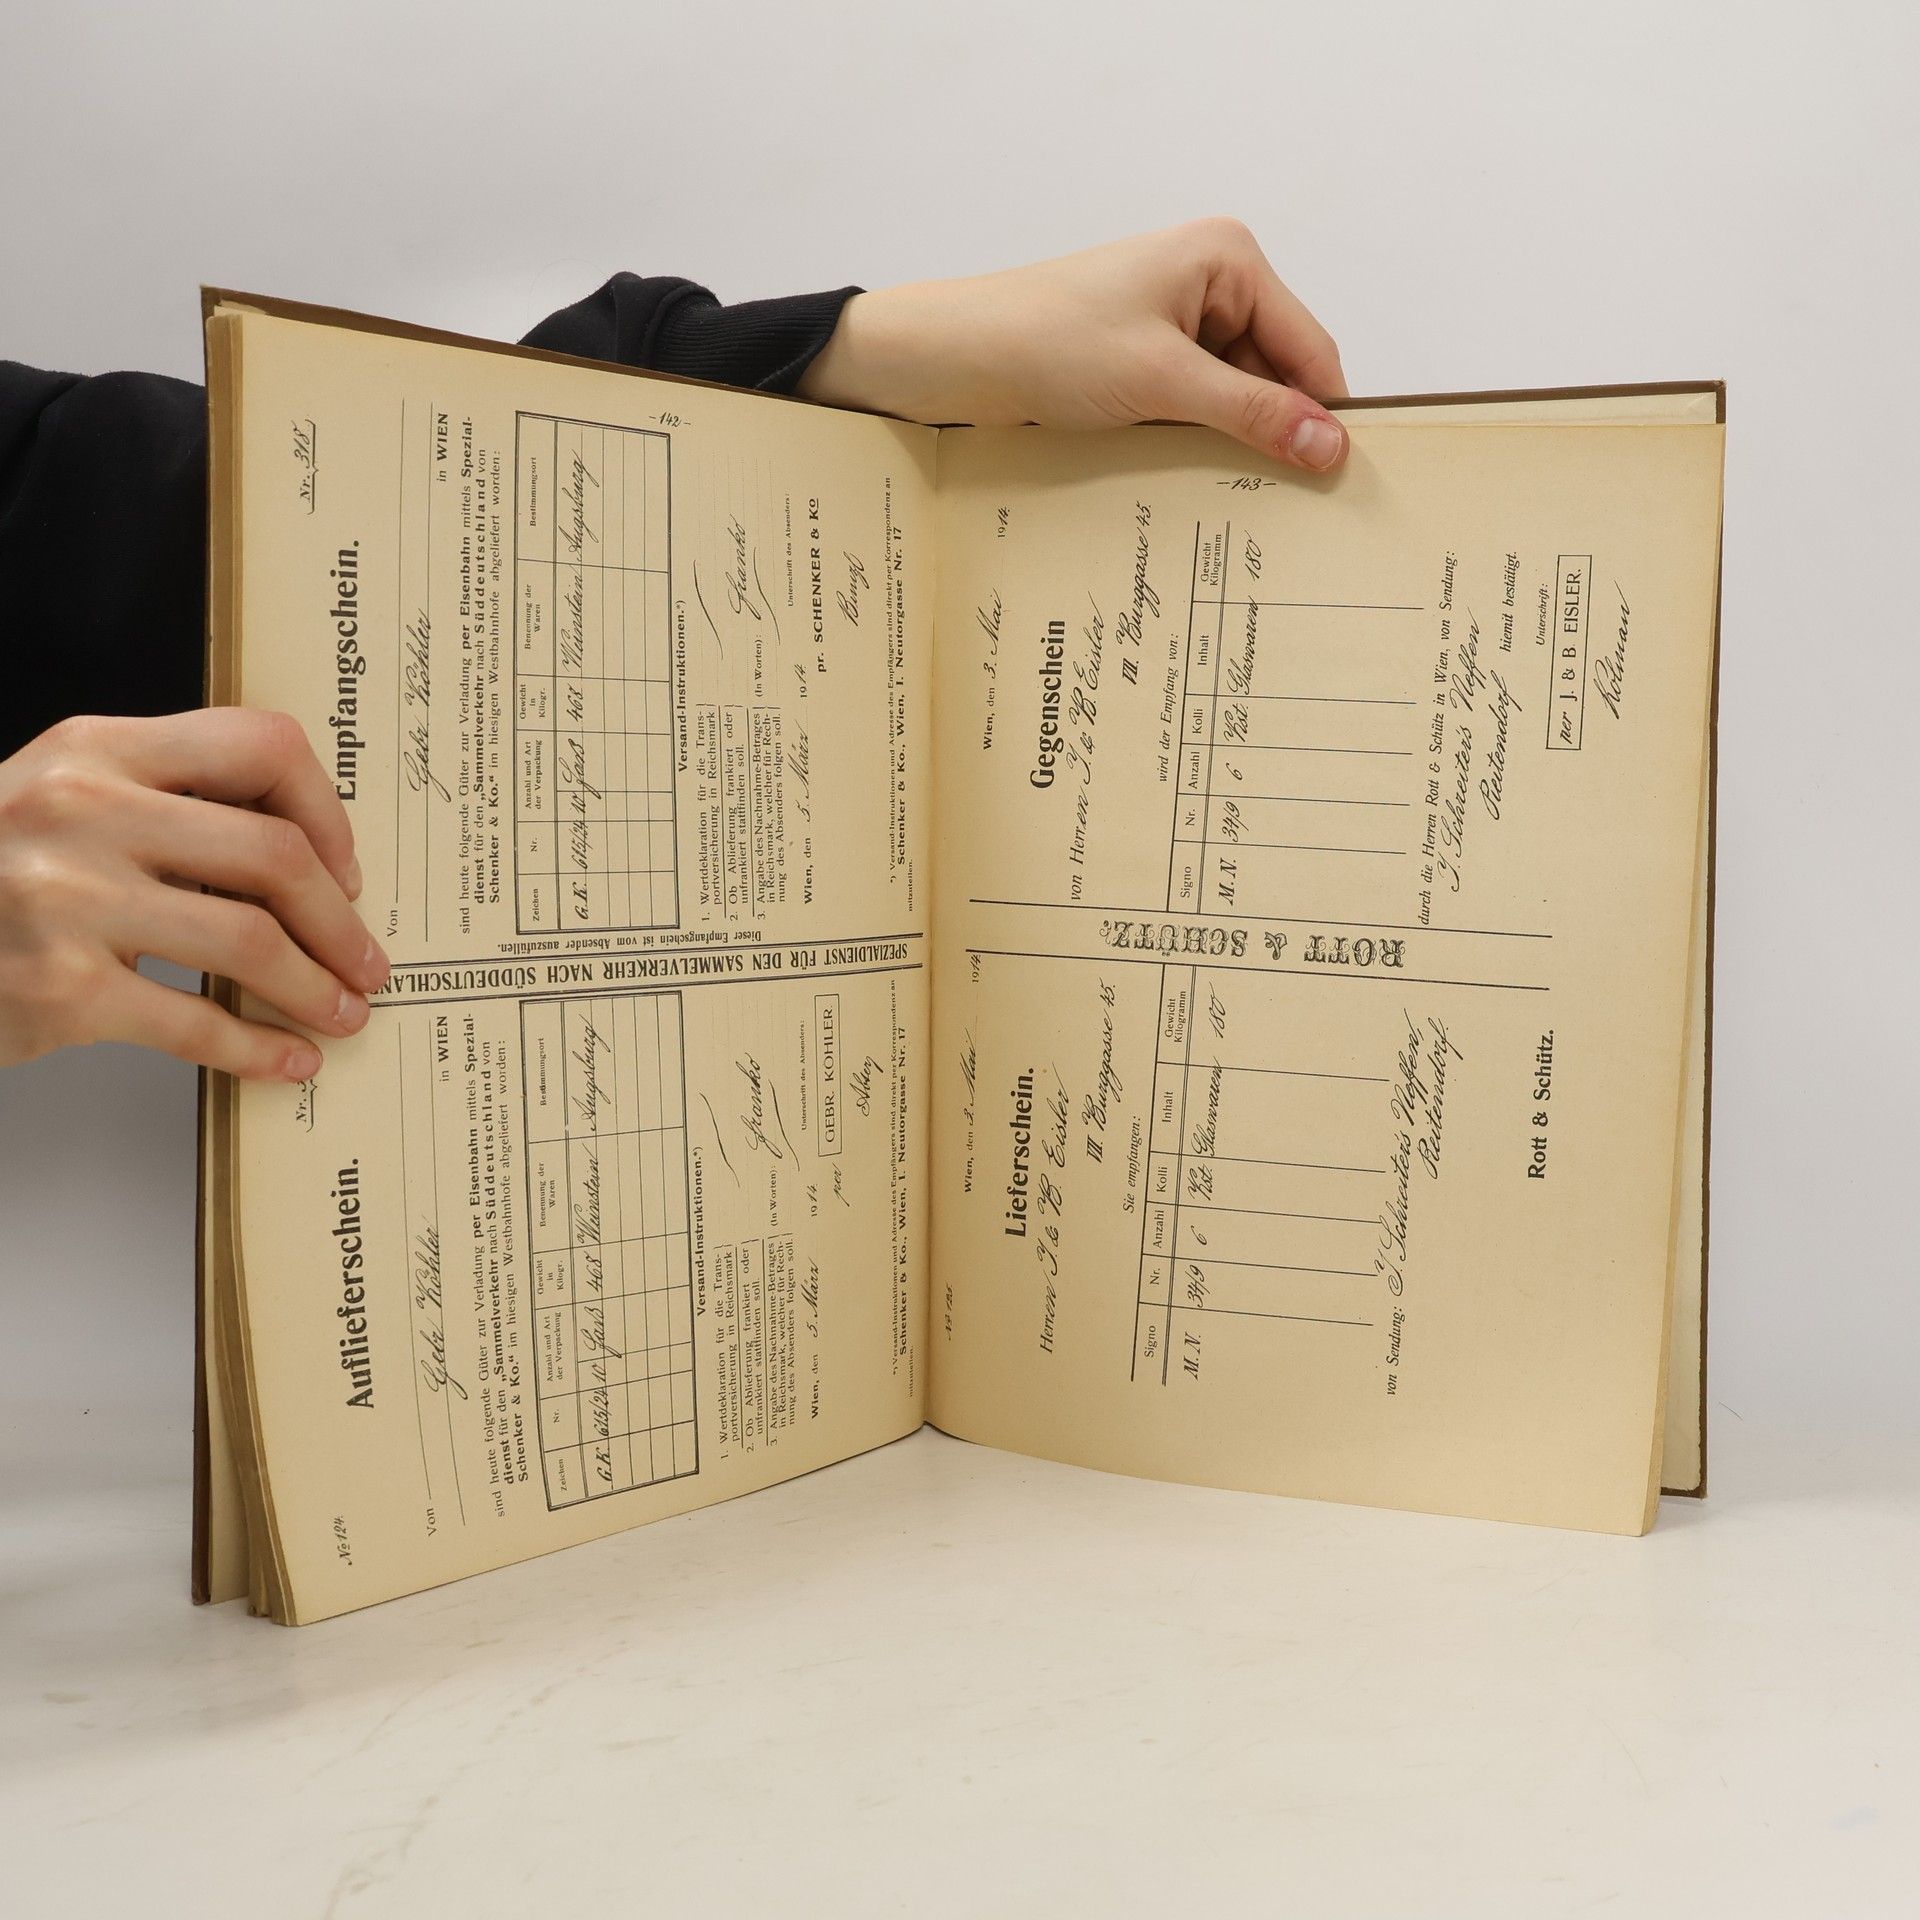 -142-
Nr. 318.
Empfangschein.
Von
Gebr. Köhler
in WIEN
sind heute folgende Güter zur Verladung per Eisenbahn mittels Spezial-
dienst für den „Sammelverkehr nach Süddeutschland von
Schenker & Ko.“ im hiesigen Westbahnhofe abgeliefert worden:
Zeichen Nr. Anzahl und Art der Verpackung Gewicht in Kilogr. Benennung der Waren Bestimmungsort
G.K. 615/24 10 Fass 468 Weinstein Augsburg
Versand-Instruktionen.*)
1. Wertdeklaration für die Trans-
portversicherung in Reichsmark
2. Ob Ablieferung frankiert oder
unfrankiert stattfinden soll.
Franko
3. Angabe des Nachnahme-Betrages
in Reichsmark, welcher für Rech-
nung des Absenders folgen soll.
(In Worten):
Unterschrift des Absenders:
Wien, den 5. März 1914.
pr. SCHENKER & Ko
*) Versand-Instruktionen und Adresse des Empfängers sind direkt per Korrespondenz an
Schenker & Ko., Wien, I. Neutorgasse Nr. 17
mitzuteilen.
Dieser Empfangschein ist vom Absender auszufüllen.
SPEZIALDIENST FÜR DEN SAMMELVERKEHR NACH SÜDDEUTSCHLAND
№ 124.
Nr. 3
Auflieferschein.
Von
Gebr. Köhler
in WIEN
sind heute folgende Güter zur Verladung per Eisenbahn mittels Spezial-
dienst für den „Sammelverkehr nach Süddeutschland von
Schenker & Ko.“ im hiesigen Westbahnhofe abgeliefert worden:
Zeichen Nr. Anzahl und Art der Verpackung Gewicht in Kilogr. Benennung der Waren Bestimmungsort
G.K. 615/24 10 Fass 468 Weinstein Augsburg
Versand-Instruktionen.*)
1. Wertdeklaration für die Trans-
portversicherung in Reichsmark
2. Ob Ablieferung frankiert oder
unfrankiert stattfinden soll.
Franko
3. Angabe des Nachnahme-Betrages
in Reichsmark, welcher für Rech-
nung des Absenders folgen soll.
(In Worten):
Unterschrift des Absenders:
Wien, den 5. März 1914.
per GEBR. KÖHLER.
*) Versand-Instruktionen und Adresse des Empfängers sind direkt per Korrespondenz an
Schenker & Ko., Wien, I. Neutorgasse Nr. 17
mitzuteilen.
-143-
Wien, den 3. Mai 1914.
Gegenschein
von Herren J. & B. Eisler
VII. Burggasse 45.
wird der Empfang von:
Signo Nr. Anzahl Kolli Inhalt Gewicht Kilogramm
M.N. 34/9 6 Kst. Glaswaren 180
durch die Herren Rott & Schütz in Wien, von Sendung:
J. Schreiter's Neffen
Reitendorf hiemit bestätigt.
Unterschrift:
per J. & B. EISLER.
Kolman
ROTT & SCHÜTZ.
№ 125.
Wien, den 3. Mai 1914.
Lieferschein.
Herren J. & B. Eisler
VII. Burggasse 45.
Sie empfangen:
Signo Nr. Anzahl Kolli Inhalt Gewicht Kilogramm
M.N. 34/9 6 Kst. Glaswaren 180
von Sendung: J. Schreiter's Neffen,
Reitendorf.
Rott & Schütz.